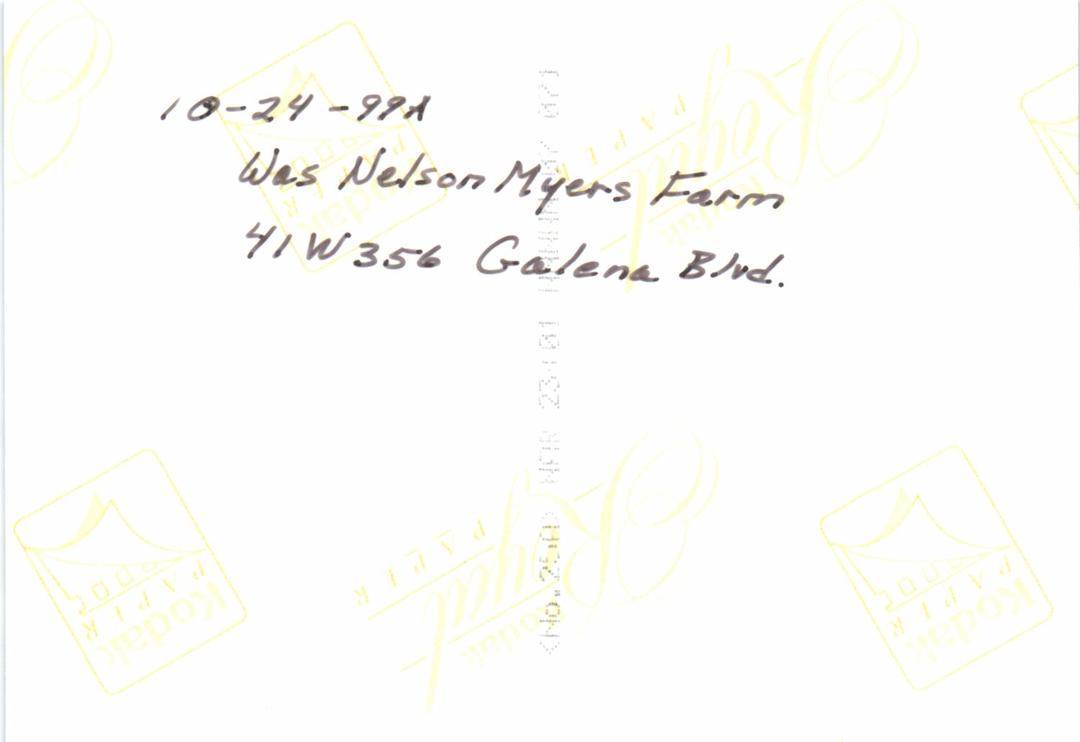 10-24-99A
Was Nelson Myers Farm
41W356 Galena Blvd.
Kodak
Royal
PAPER
Kodak
PAPER
Kodak
Royal
PAPER
Kodak
PAPER